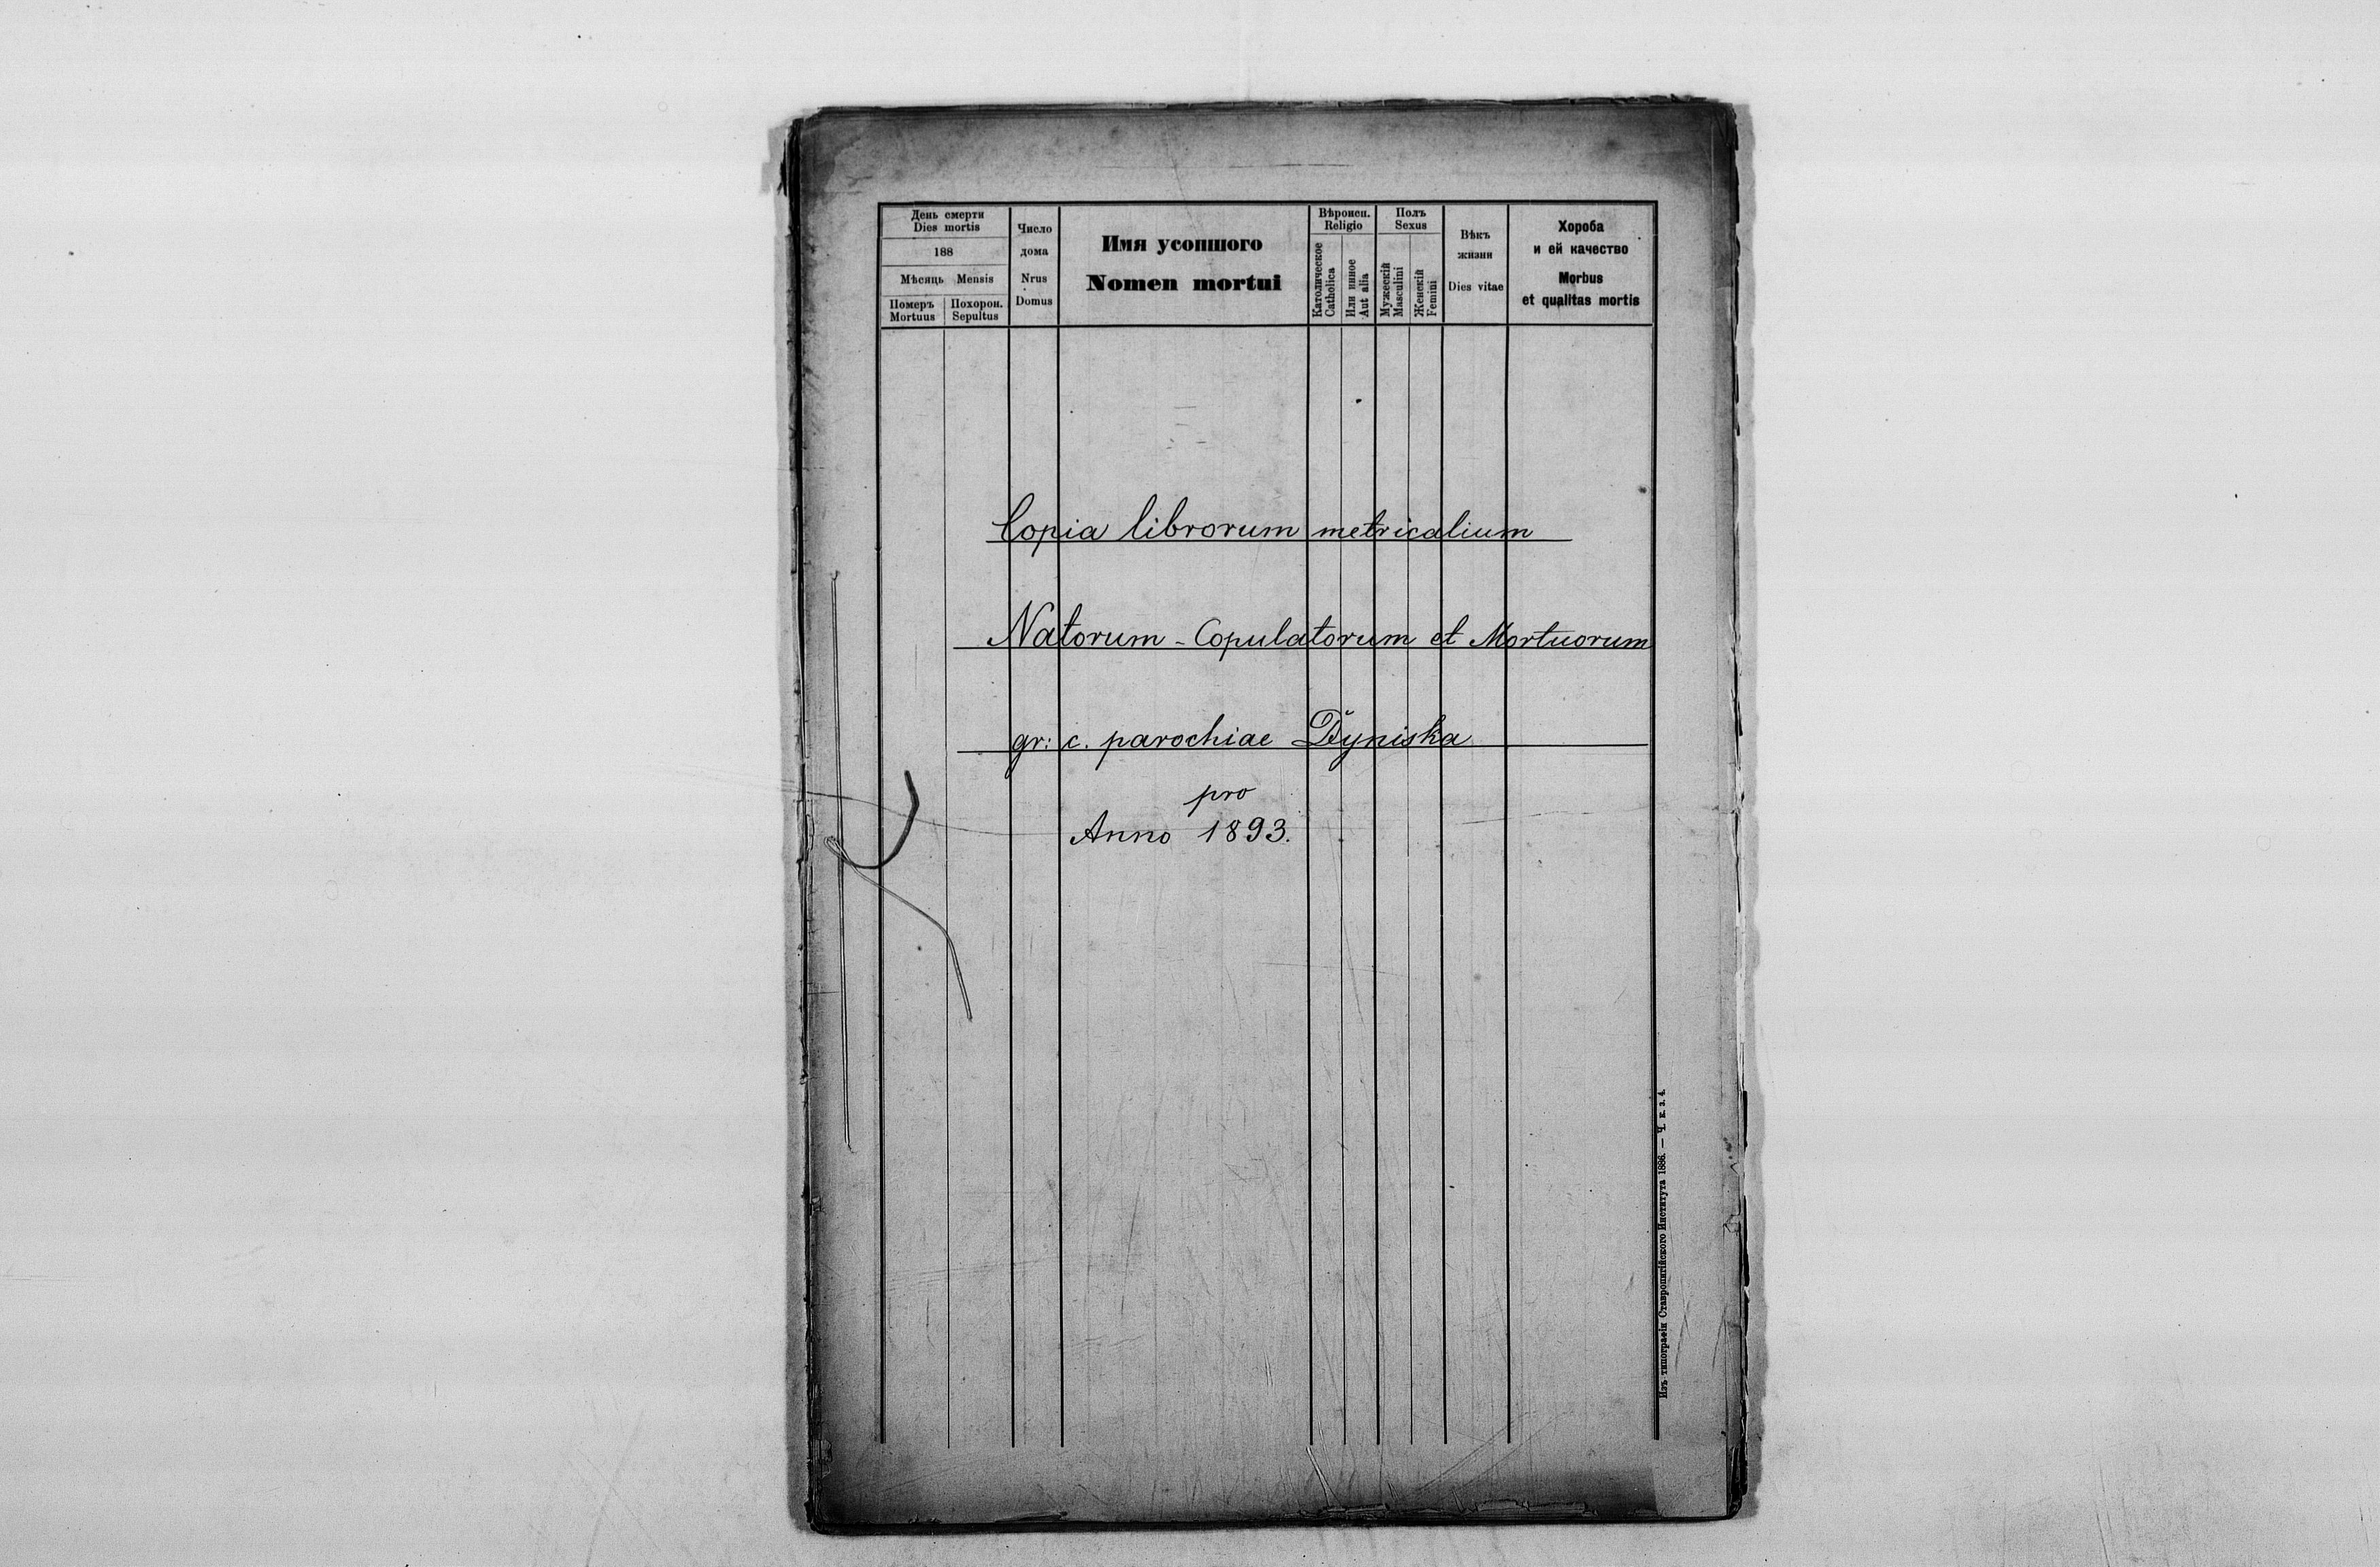 День смерти
Dies mortis
188
Мѣсяць Mensis
Померъ
Mortuus
Похорон.
Sepultus
Число
дома
Nrus
Domus
Имя усопшого
Nomen mortui
Вѣроисп.
Religio
Католическое
Catholica
Или инное
Aut alia
Полъ
Sexus
Мужескій
Masculini
Женскій
Femini
Вѣкъ
жизни
Dies vitae
Хороба
и ей качество
Morbus
et qualitas mortis
Copia librorum metricalium
Natorum - Copulatorum et Mortuorum
gr: c. parochiae Dyniska
pro
Anno 1893.
Изъ типографіи Ставропигійского Института 1886. — Ч. к. з. 4.